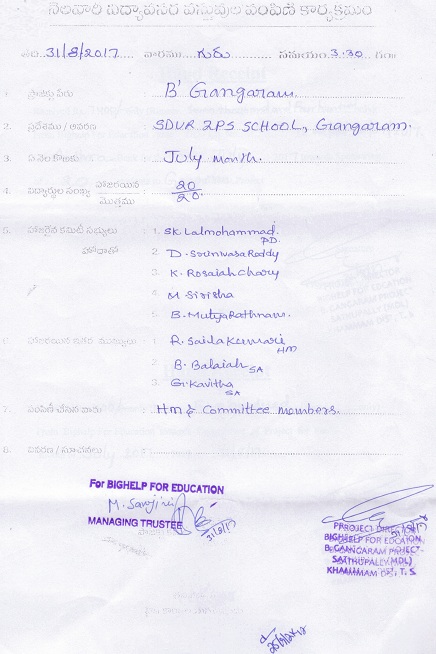 నెలవారీ విద్యావసర వస్తువుల పంపిణీ కార్యక్రమం
తేది 31/8/2017 వారము గురు సమయం 3.30 గం॥
1. ప్రాజెక్టు పేరు : B' Gangaram.
2. ప్రదేశము / ఆవరణ : SDUR 2PS SCHOOL, Gangaram.
3. ఏ నెల కొరకు : July month.
4. విద్యార్థుల సంఖ్య హాజరయిన మొత్తము : 20/20.
5. హాజరైన కమిటీ సభ్యులు : 1. SK. Lalmohammad. PD.
హోదాతో 2 D. Srinivasa Reddy
3 K. Rosaiah Chary
4. M Sirisha
5. B. Mutya Rathnam.
6. హాజరయిన ఇతర ముఖ్యులు : 1. R. Saila Kumari HM
2. B. Balaiah SA
3. G. Kavitha SA
7. పంపిణీ చేసిన వారు : HM & Committee members.
8. వివరణ / సూచనలు :
For BIGHELP FOR EDUCATION
M. Sarojini
MANAGING TRUSTEE
31/8/17
PROJECT DIRECTOR
31/8/17
BIGHELP FOR EDUCATION
B. GANGARAM PROJECT
SATHUPALLY (MDL)
KHAMMAM DIST, T. S.